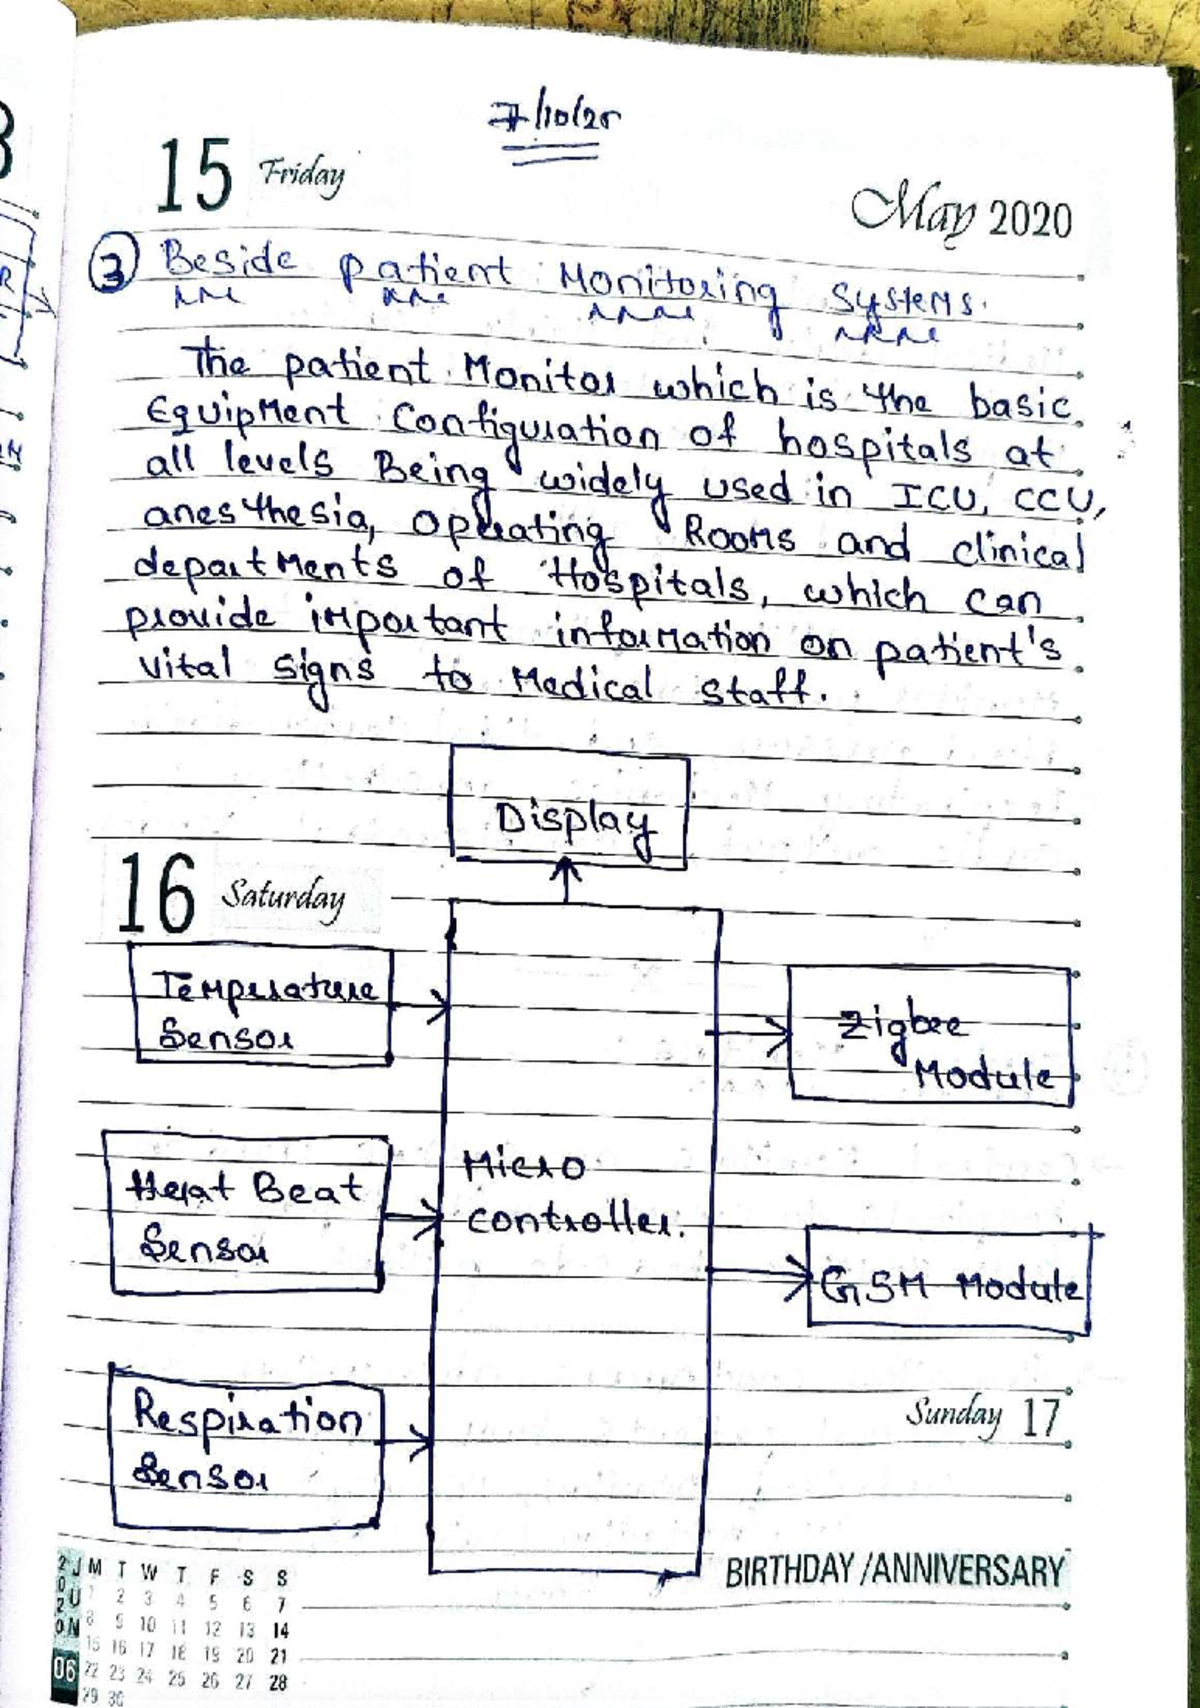 7/10/25
15 Friday
May 2020
3 Beside patient Monitoring Systems.
The patient Monitor which is the basic
Equipment Configuration of hospitals at
all levels Being widely used in ICU, CCU,
anesthesia, Operating Rooms and clinical
departments of Hospitals, which can
provide important information on patient's
vital signs to Medical staff.
Display
16 Saturday
Temperature
Sensor
Zigbee
Module
Micro
controller.
Heart Beat
Sensor
GSM Module
Respiration
Sensor
Sunday 17
BIRTHDAY/ANNIVERSARY
2020 JUN 06
M T W T F S S
1 2 3 4 5 6 7
8 9 10 11 12 13 14
15 16 17 18 19 20 21
22 23 24 25 26 27 28
29 30